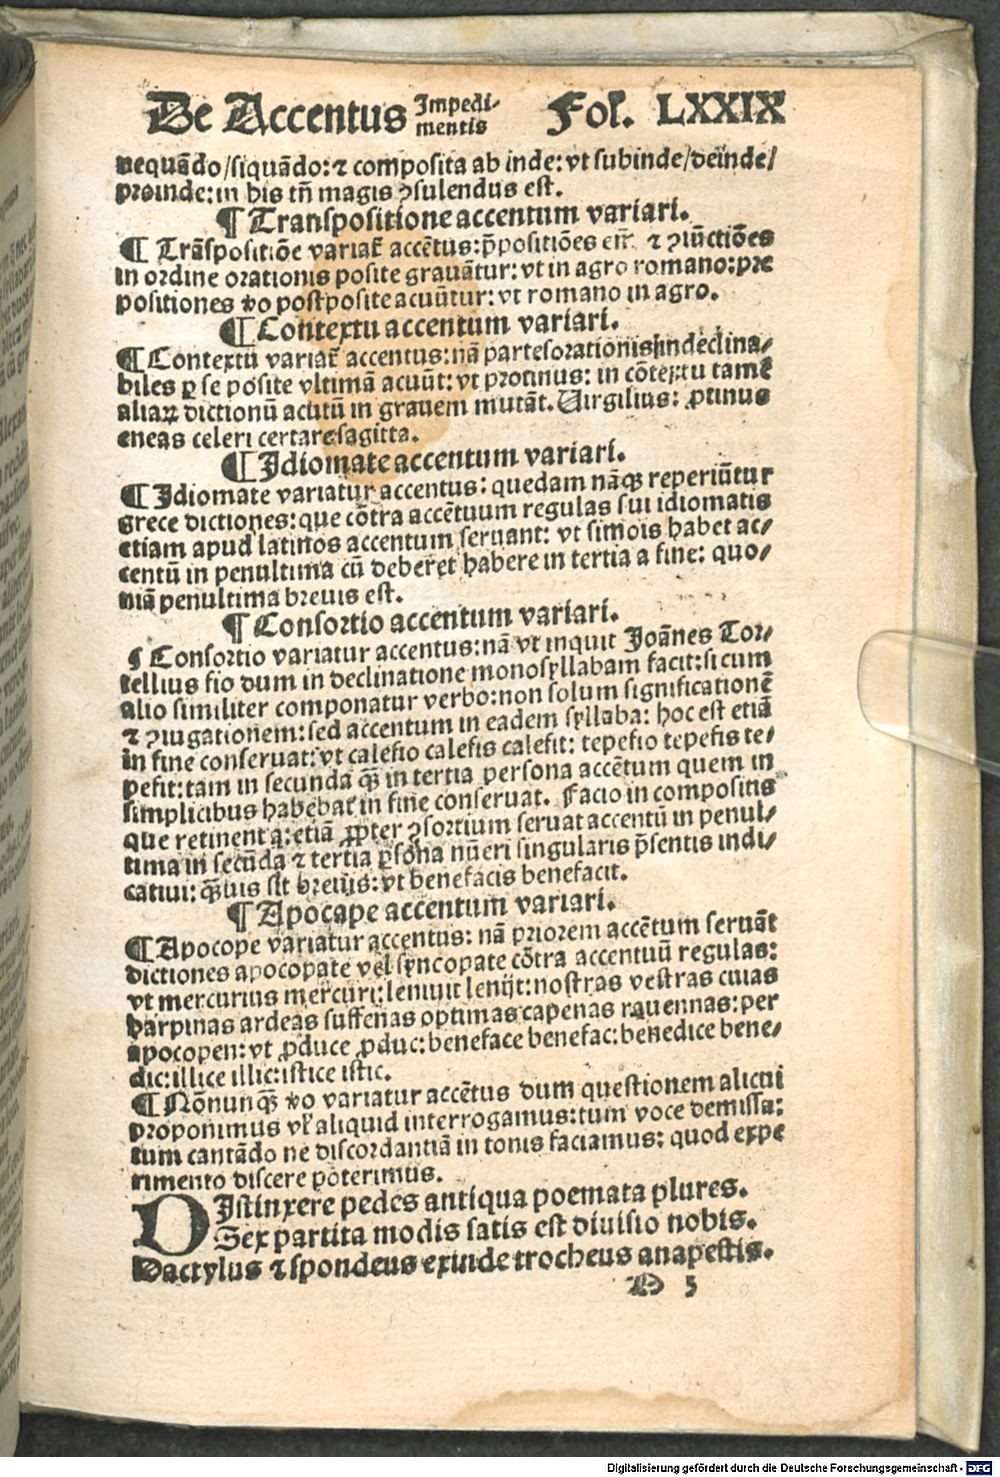 De Accentus Impedi-
mentis Fol. LXXIX
nequādo/siquādo: ⁊ composita ab inde: vt subinde/deinde/
proinde: in his tñ magis ꝯsulendus est.
¶ Transpositione accentum variari.
¶ Trāspositiōe variat᷑ accētus: p̄positiōes em̄ ⁊ ꝯiūctiōes
in ordine orationis posite grauātur: vt in agro romano: pre
positiones ꝟo postposite acuūtur: vt romano in agro.
¶ Contextu accentum variari.
¶ Contextu variat᷑ accentus: nā partes orationis indeclina-
biles ꝑ se posite vltimā acuūt: vt protinus: in cōtextu tamē
aliaꝝ dictionū acutū in grauem mutāt. Virgilius: ꝓtinus
eneas celeri certare sagitta.
¶ Idiomate accentum variari.
¶ Idiomate variatur accentus: quedam nāqꝫ reperiūtur
grece dictiones: que cōtra accētuum regulas sui idiomatis
etiam apud latinos accentum seruant: vt simois habet ac-
centū in penultima cū deberet habere in tertia a fine: quo-
niā penultima breuis est.
¶ Consortio accentum variari.
¶ Consortio variatur accentus: nā vt inquit Joānes Tor-
tellius fio dum in declinatione monosyllabam facit: si cum
alio similiter componatur verbo: non solum significationē
⁊ ꝯiugationem: sed accentum in eadem syllaba: hoc est etiā
in fine conseruat: vt calefio calefis calefit: tepefio tepefis te-
pefit: tam in secunda qꝫ̄ in tertia persona accētum quem in
simplicibus habebat᷑ in fine conseruat. Facio in compositis
que retinent a: etiā ꝓpter ꝯsortium seruat accentū in penul-
tima in secūda ⁊ tertia ꝑsona nūeri singularis p̄sentis indi-
catiui: qꝫ̄uis sit breuis: vt benefacis benefacit.
¶ Apocape accentum variari.
¶ Apocope variatur accentus: nā priorem accētum seruāt
dictiones apocopate vel syncopate cōtra accentuū regulas:
vt mercurius mercuri: leniuit lenijt: nostras vestras cuias
harpinas ardeas suffenas optimas capenas rauennas: per
apocopen: vt ꝓduce ꝓduc: beneface benefac: benedice bene-
dic: illice illic: istice istic.
¶ Nōnunqꝫ̄ ꝟo variatur accētus dum questionem alicui
proponimus vl᷑ aliquid interrogamus: tum voce demissa:
tum cantādo ne discordantiā in tonis faciamus: quod expe
rimento discere poterimus.
DIstinxere pedes antiqua poemata plures.
Sex partita modis satis est diuisio nobis.
Dactylus ⁊ spondeus exinde trocheus anapestis.
5
Digitalisierung gefördert durch die Deutsche Forschungsgemeinschaft - DFG